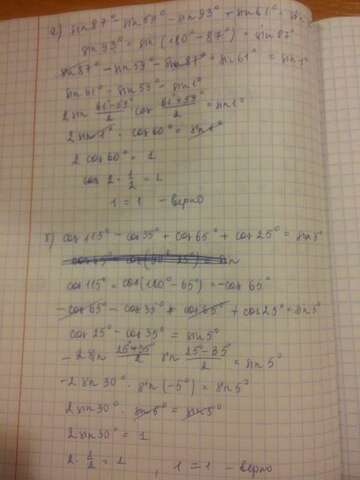 а) sin87° - sin59° - sin93° + sin61° = sin1°
sin93° = sin(180° - 87°) = sin87°
sin87° - sin59° - sin87° + sin61° = sin1°
sin61° - sin59° = sin1°
2sin (61°-59°)/2 · cos (61°+59°)/2 = sin1°
2sin1° · cos60° = sin1°
2cos60° = 1
cos 2·1/2 = 1
1 = 1 - верно
б) cos115° - cos35° + cos65° + cos25° = sin5°
cos115° = cos(180° - 65°) = -cos65°
-cos65° - cos35° + cos65° + cos25° = sin5°
cos25° - cos35° = sin5°
-2sin (25°+35°)/2 · sin (25°-35°)/2 = sin5°
-2sin30° · sin(-5°) = sin5°
2sin30° · sin5° = sin5°
2sin30° = 1
2·1/2 = 1, 1 = 1 - верно